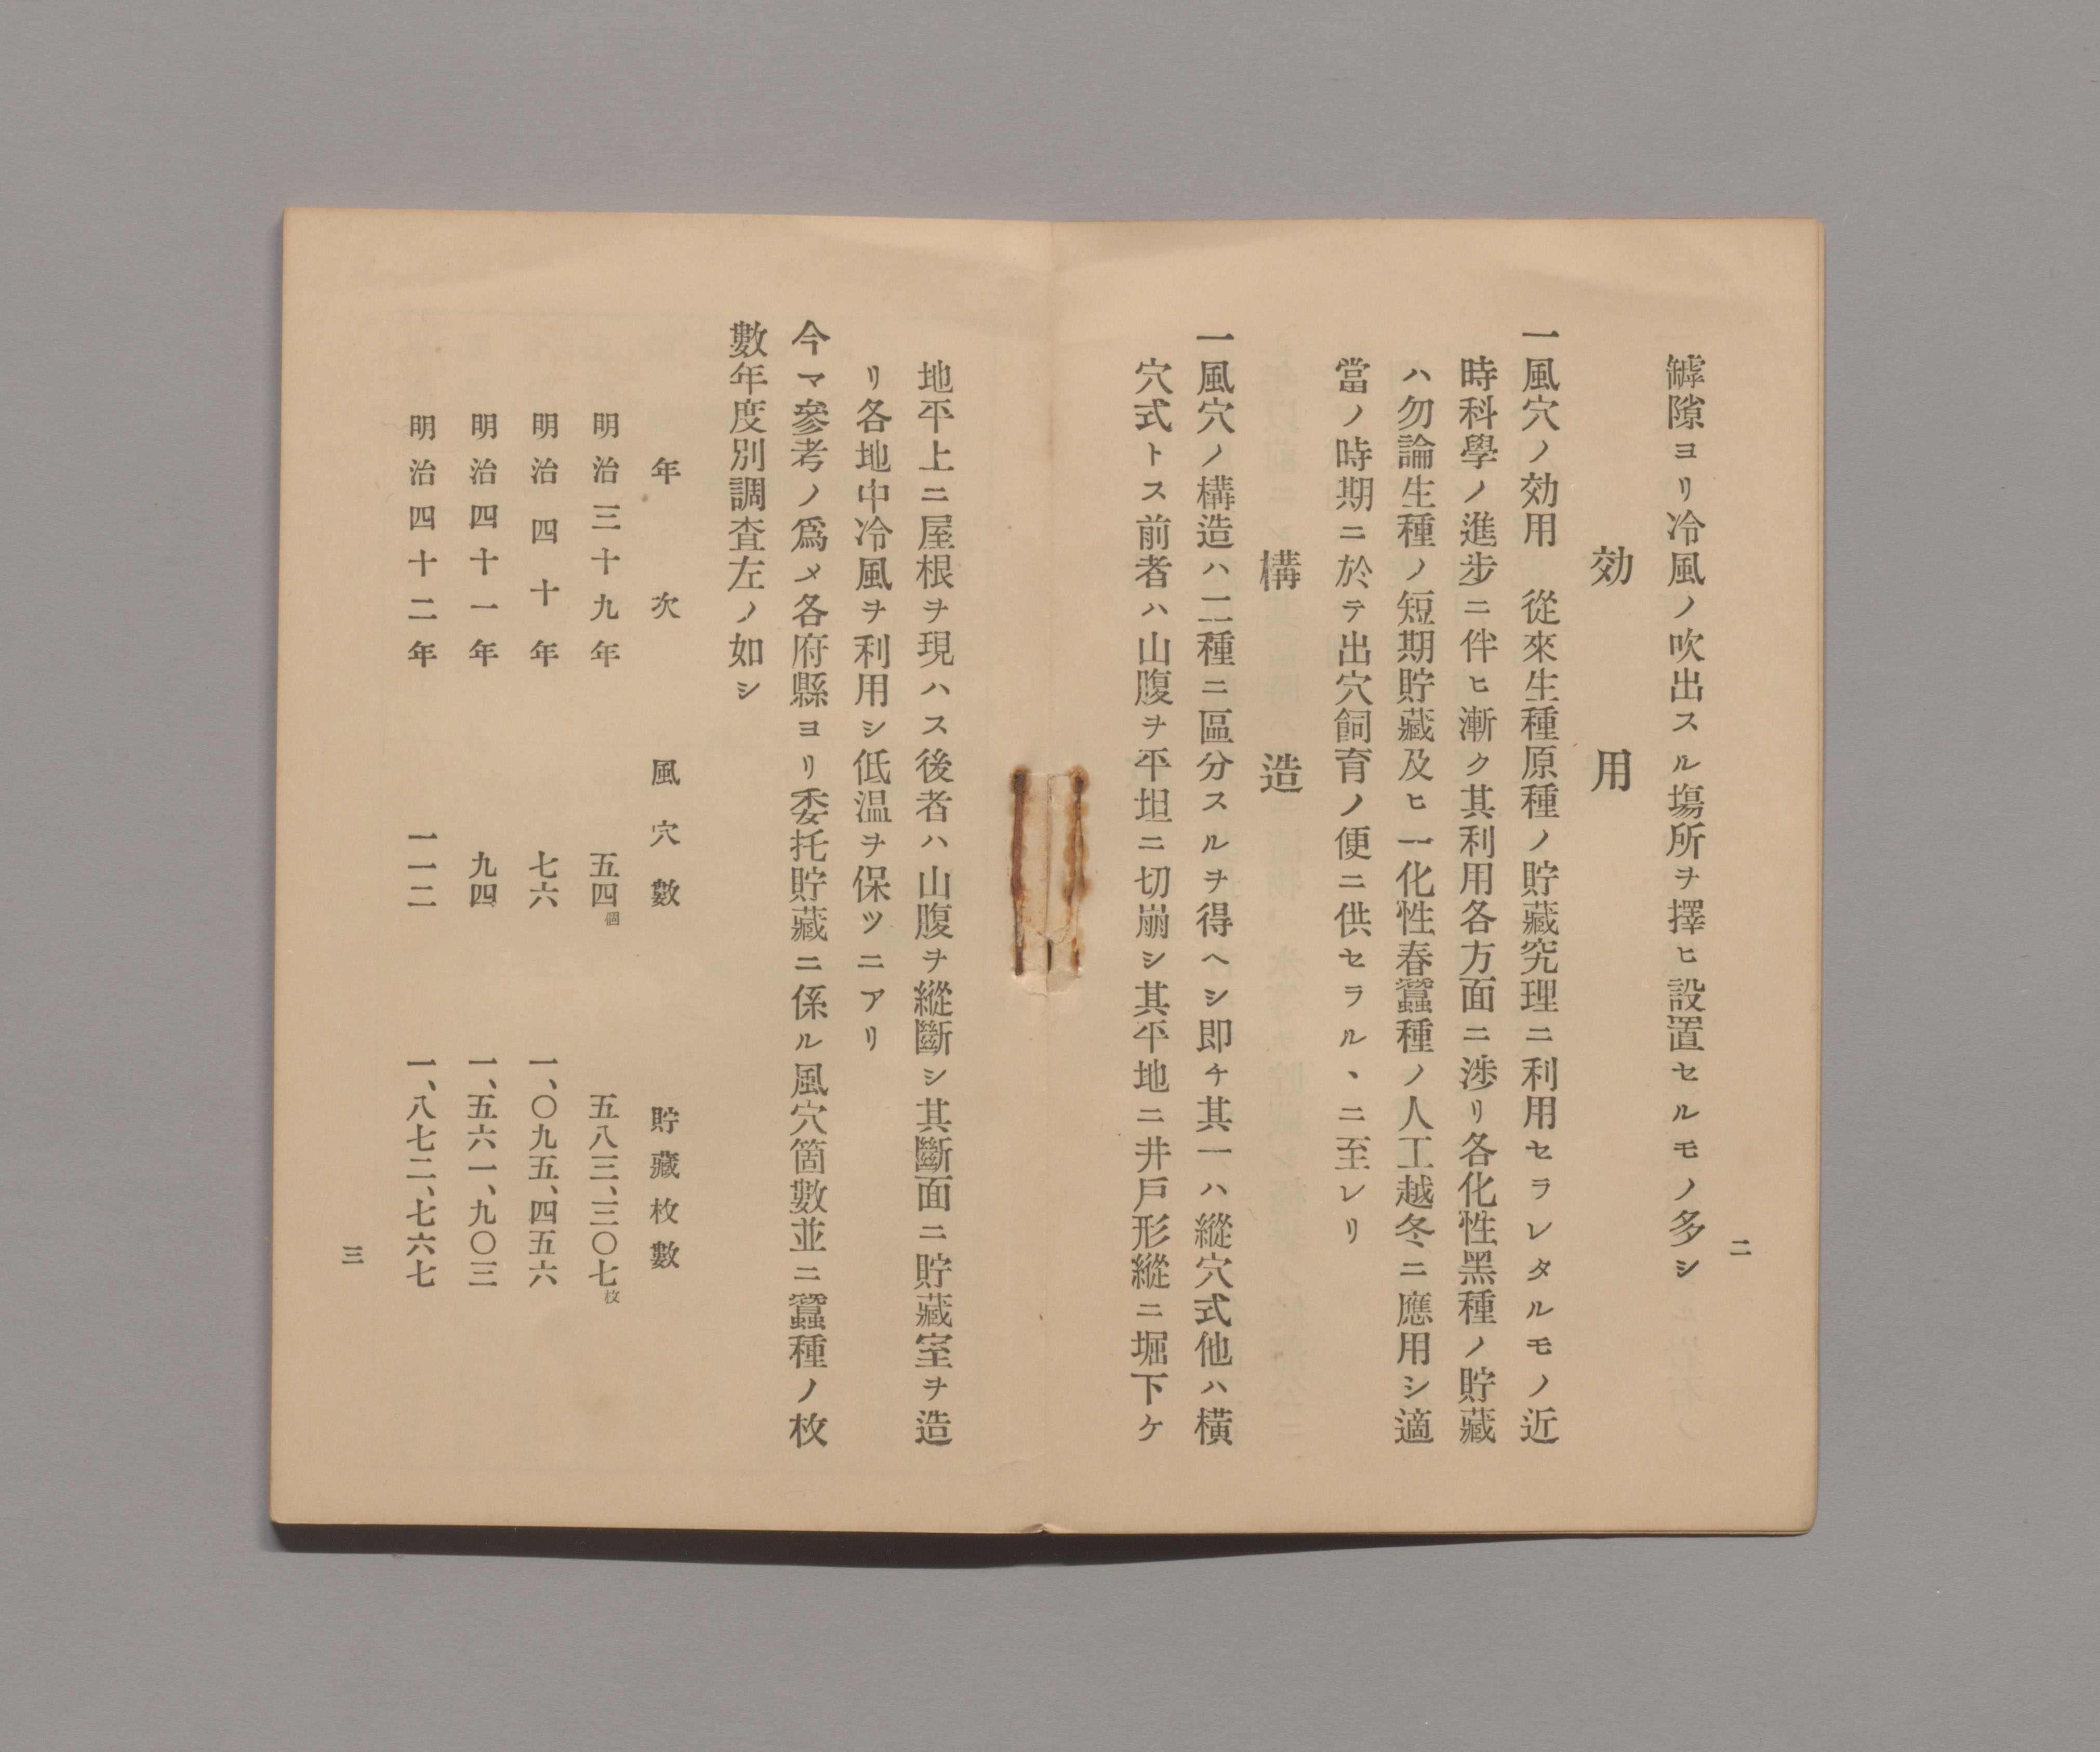 二
罅隙ヨリ冷風ノ吹出スル塲所ヲ擇ヒ設置セルモノ多シ
効用
一風穴ノ効用　從來生種原種ノ貯藏究理ニ利用セラレタルモノ近
時科學ノ進步ニ伴ヒ漸ク其利用各方面ニ涉リ各化性黑種ノ貯藏
ハ勿論生種ノ短期貯藏及ヒ一化性春蠶種ノ人工越冬ニ應用シ適
當ノ時期ニ於テ出穴飼育ノ便ニ供セラル、ニ至レリ
構造
一風穴ノ構造ハ二種ニ區分スルヲ得ヘシ即チ其一ハ縱穴式他ハ橫
穴式トス前者ハ山腹ヲ平坦ニ切崩シ其平地ニ井戶形縱ニ堀下ケ
地平上ニ屋根ヲ現ハス後者ハ山腹ヲ縱斷シ其斷面ニ貯藏室ヲ造
リ各地中冷風ヲ利用シ低温ヲ保ツニアリ
今マ參考ノ爲メ各府縣ヨリ委托貯藏ニ係ル風穴箇數並ニ蠶種ノ枚
數年度別調査左ノ如シ
年次　風穴數　貯藏枚數
明治三十九年　五四個　五八三、三〇七枚
明治四十年　七六　一、〇九五、四五六
明治四十一年　九四　一、五六一、九〇三
明治四十二年　一一二　一、八七二、七六七
三